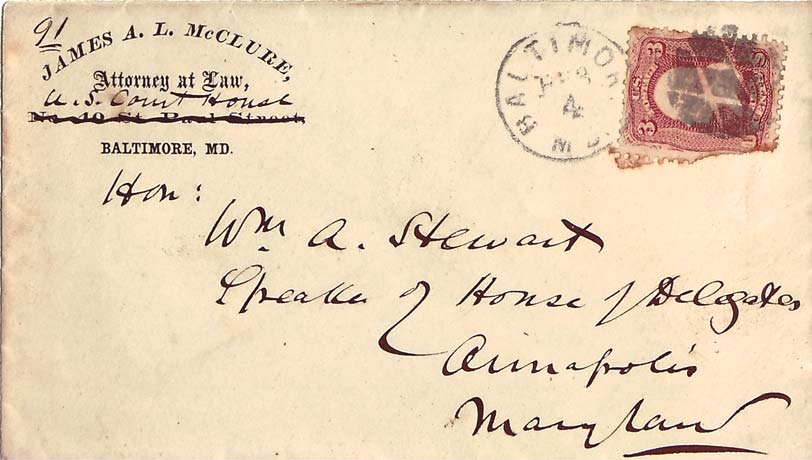 91
JAMES A. L. McCLURE,
Attorney at Law,
U.S. Court House
No. 40 St. Paul Street,
BALTIMORE, MD.
BALTIMORE MD
4
3
3
U.S.
Hon:
Wm A. Stewart
Speaker of House of Delegates
Annapolis
Maryland